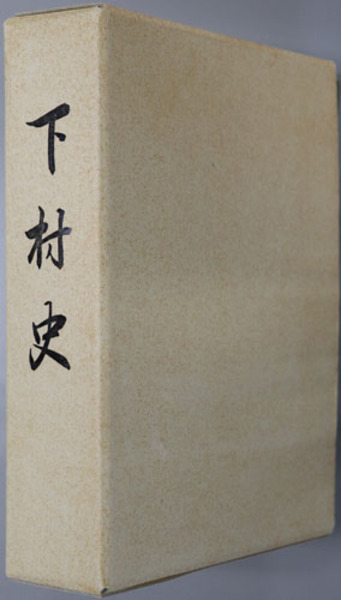 下村史